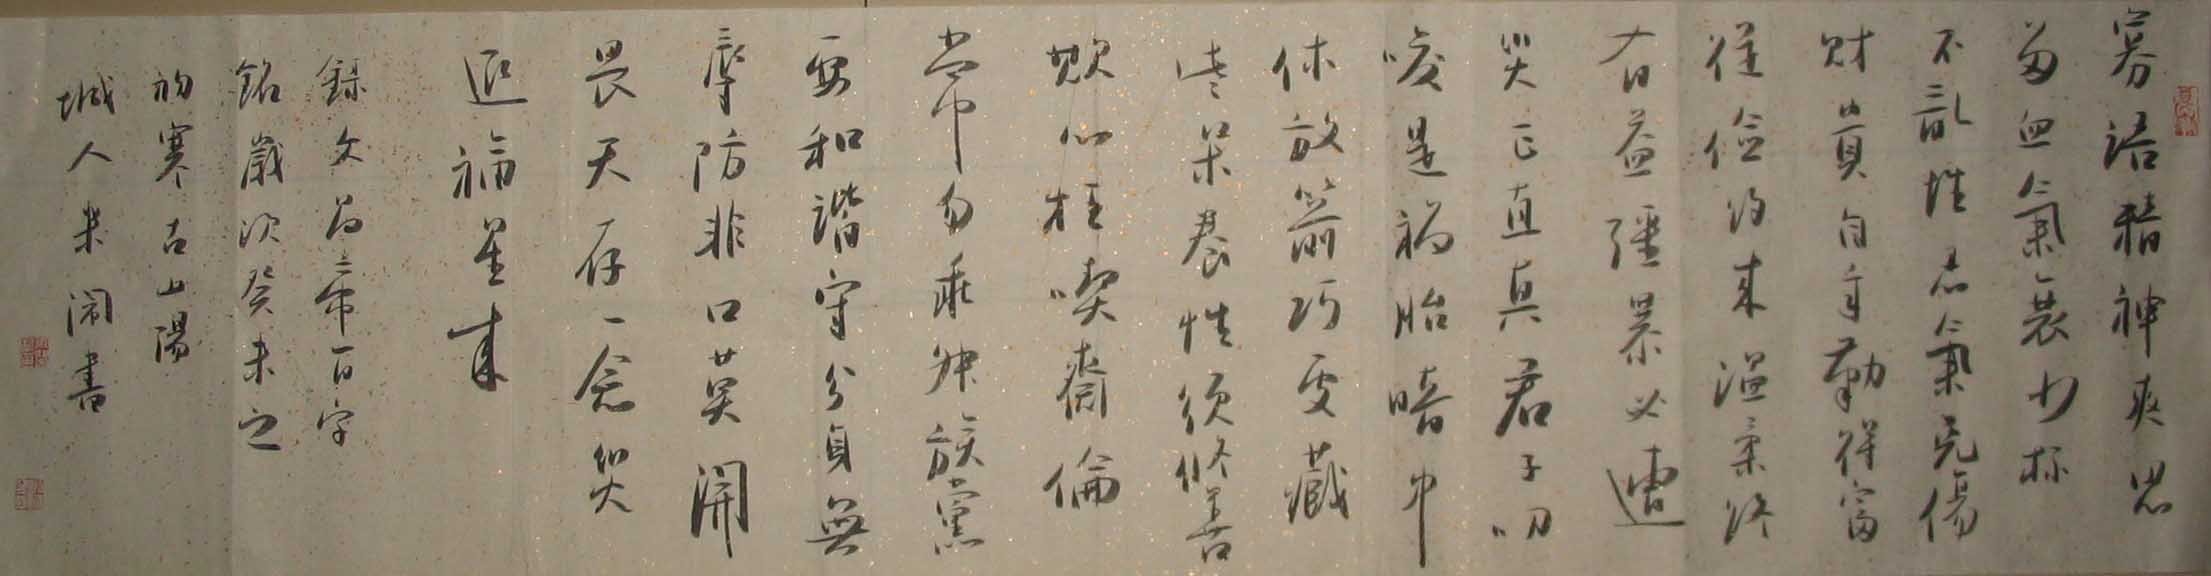 寡語精神爽思
多血氣衰少杯
不亂性忍氣免傷
財貴自辛勤得富
從儉約來溫柔終
有益彊暴必遭
災正直真君子刁
唆是禍胎暗中
休放箭巧處藏
些呆養性須修善
欺心枉喫齋倫
常勿乖舛族黨
要和諧守分身無
辱防非口莫開
畏天存一念災
退福星來
錄文昌帝百字
銘歲次癸未之
初寒古山陽
城人朱書